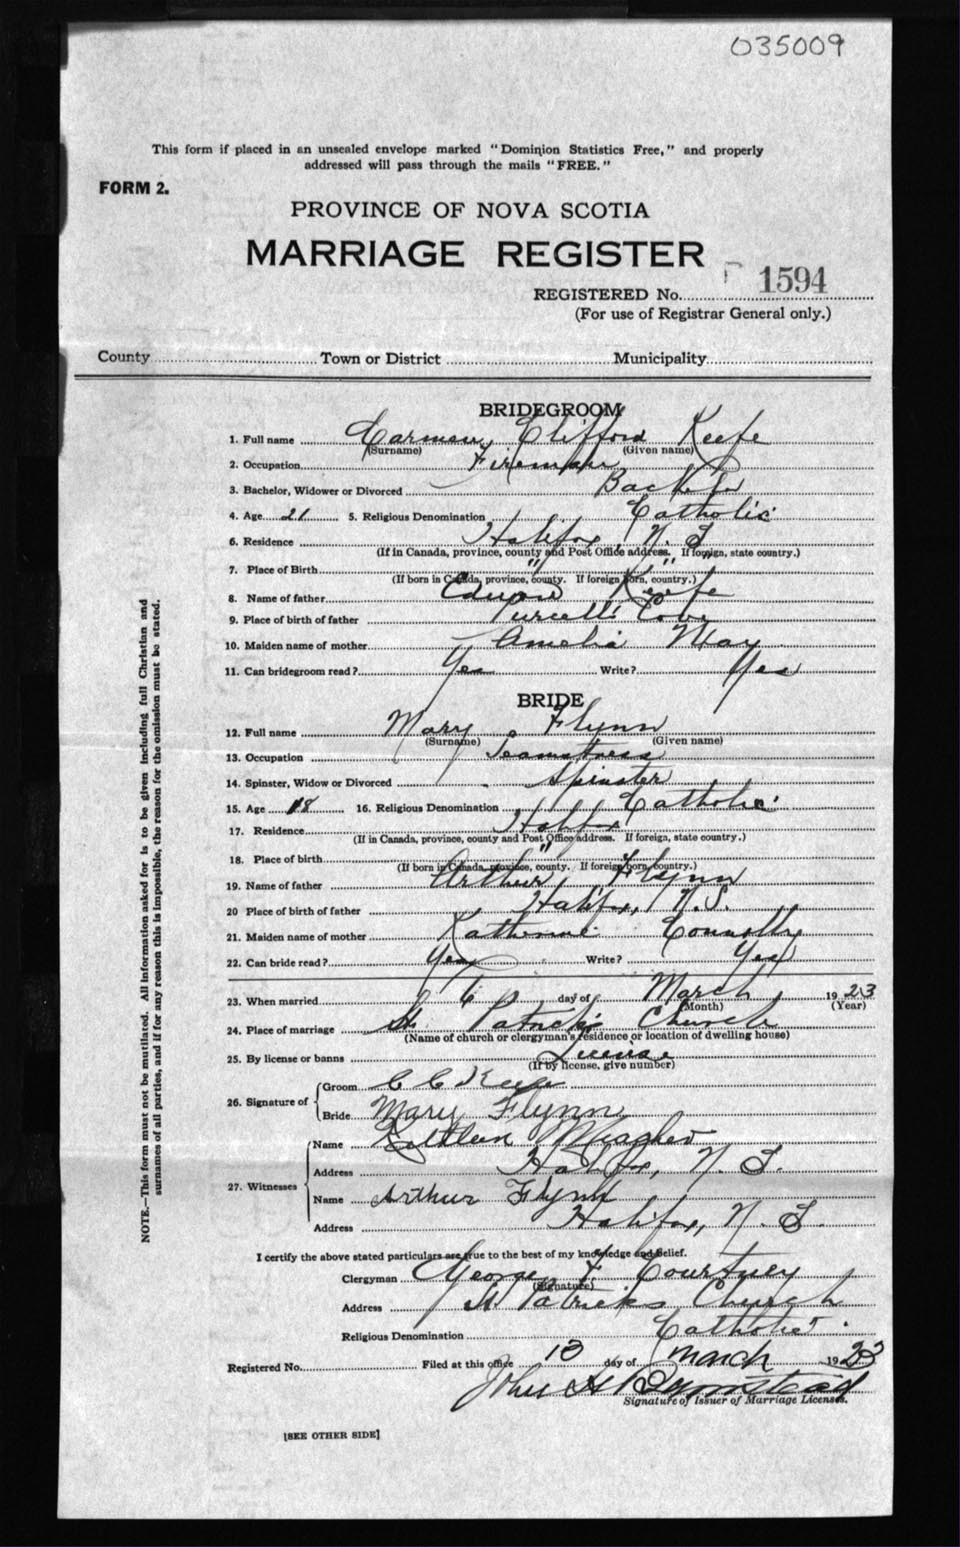 035009
This form if placed in an unsealed envelope marked "Dominion Statistics Free," and properly
addressed will pass through the mails "FREE."
FORM 2.
PROVINCE OF NOVA SCOTIA
MARRIAGE REGISTER
REGISTERED No. 1594
(For use of Registrar General only.)
County Town or District Municipality
BRIDEGROOM
1. Full name Carman, Clifford Keefe
(Surname) (Given name)
2. Occupation Fireman
3. Bachelor, Widower or Divorced Bachelor
4. Age 21 5. Religious Denomination Catholic
6. Residence Halifax, N. S
(If in Canada, province, county and Post Office address. If foreign, state country.)
7. Place of Birth " "
(If born in Canada, province, county. If foreign born, country.)
8. Name of father Edward Keefe
9. Place of birth of father Purcell's Cove
10. Maiden name of mother Amelia May
11. Can bridegroom read? Yes Write? Yes
BRIDE
12. Full name Mary Flynn
(Surname) (Given name)
13. Occupation Seamstress
14. Spinster, Widow or Divorced Spinster
15. Age 18 16. Religious Denomination Catholic
17. Residence Halifax
(If in Canada, province, county and Post Office address. If foreign, state country.)
18. Place of birth "
(If born in Canada, province, county. If foreign born, country.)
19. Name of father Arthur Flynn
20 Place of birth of father Halifax, N.S.
21. Maiden name of mother Katherine Connolly
22. Can bride read? Yes Write? Yes
23. When married 6 day of March 1923
(Month) (Year)
24. Place of marriage St Patrick's Church
(Name of church or clergyman's residence or location of dwelling house)
25. By license or banns License
(If by license, give number)
26. Signature of Groom C C Keefe
Bride Mary Flynn
27. Witnesses Name Kathleen Meagher
Address Halifax, N. S.
Name Arthur Flynn
Address Halifax, N. S.
I certify the above stated particulars are true to the best of my knowledge and belief.
Clergyman George F Courtney
(Signature)
Address St Patricks Church
Religious Denomination Catholic
Registered No. Filed at this office 13 day of March 1923
John H
Signature of Issuer of Marriage Licenses.
[SEE OTHER SIDE]
NOTE.—This form must not be mutilated. All information asked for is to be given including full Christian and
surnames of all parties, and if for any reason this is impossible, the reason for the omission must be stated.